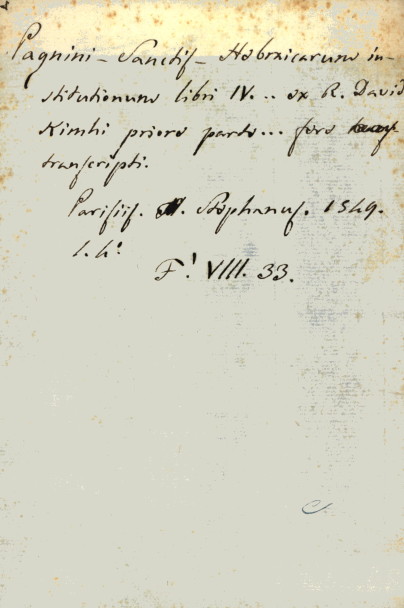 Pagnini - Sanctis - Hebraicarum in-
stitutionum libri IV... ex R. David
Kimhi priore parte... fere
transcripti.
Parisiis. R. Stephanus. 1549.
1. 4°.
F! VIII. 33.